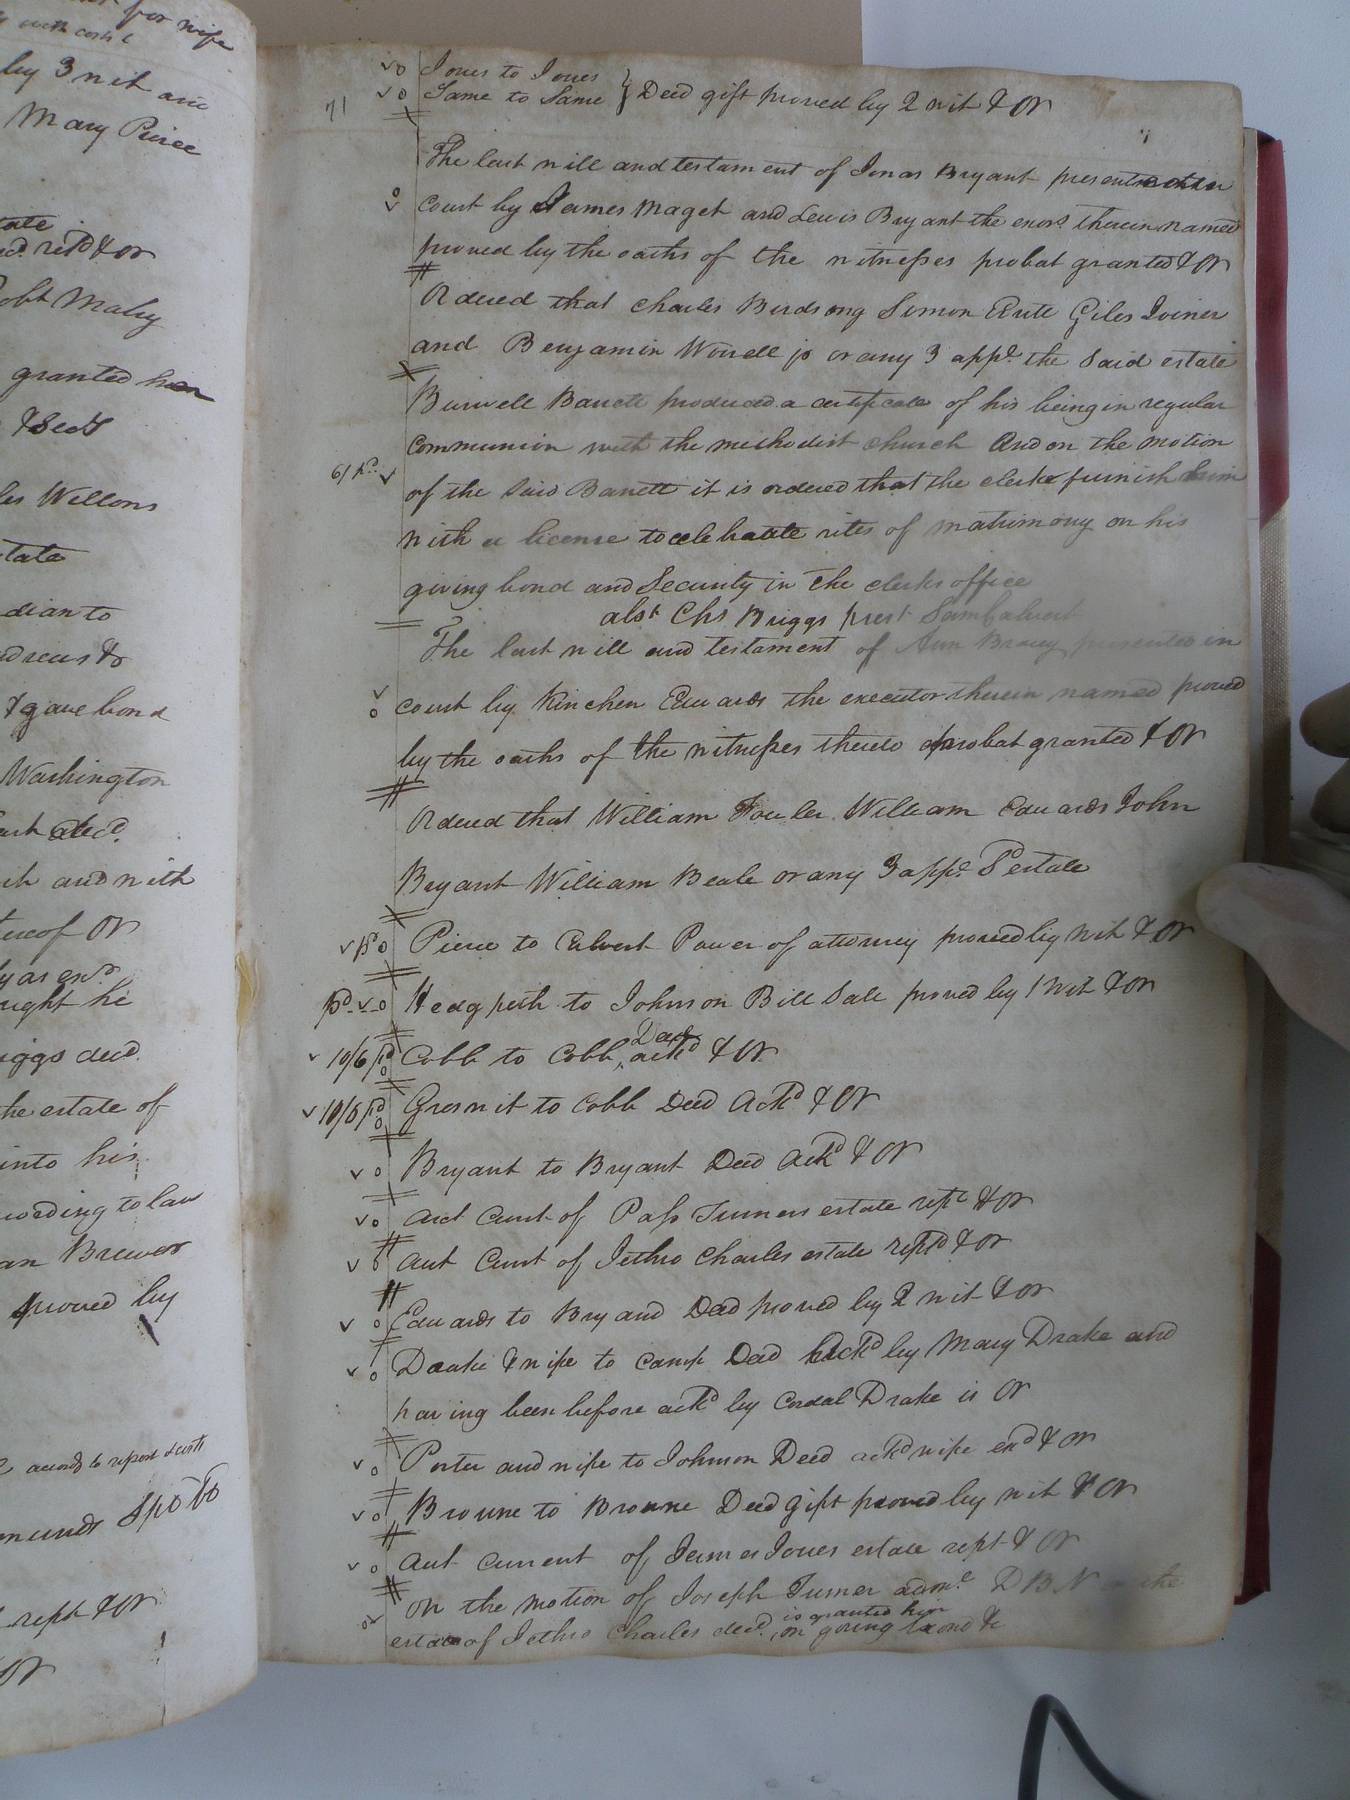 for wife
with costs &
by 3 wit and
Mary Pierce
tate
retd & OR
Robt Mabry
granted him
& Secy
les Willons
state
dian to
& gave bond
Washington
decd.
and with
tereof OR
ught he
iggs decd.
the estate of
into his
cording to law
an Brewer
proved by
accordg to report & costs
rept & OR
OR
71
Jones to Jones
Same to Same } Deed gift proved by 2 wit & OR
The last will and testament of Jonas Bryant presented
court by James Maget and Lewis Bryant the exors therein named
proved by the oaths of the witnesses probat granted & OR
Ordered that Charles Birdsong Simon Giles Joiner
and Benjamin Worrell jr or any 3 appe. the Said estate
Burwell Barrett produced a certificate of his being in regular
Communion with the methodist church And on the motion
6/ pd. of the Said Barrett it is ordered that the clerk furnish him
with a license to celebrate rites of matrimony on his
giving bond and Security in the clerks office
abst Chs Briggs prest Saml Calvert
The last will and testament of Ann Bracy presented in
court by Kinchen Edwards the executor therein named proved
by the oaths of the witnesses thereto probat granted & OR
Ordered that William Fowler William Edwards John
Bryant William Beale or any 3 appe. Sd estate
pd o Pierce to Calvert Power of attorney proved by wit & OR
pd. o Hedgpeth to Johnson Bill Sale proved by 1 wit & OR
10/6 pd o Cobb to Cobb, Deed ackd & OR
10/6 pd o Greswit to Cobb Deed Ackd & OR
o Bryant to Bryant Deed Ackd & OR
o Act Curnt of Pass Turners estate retd & OR
o Act Curnt of Jethro Charles estate retd & OR
o Edwards to Bryand Deed proved by 2 wit & OR
o Drake & wife to Camp Deed Ackd by Mary Drake and
having been before ackd by Cordal Drake is OR
o Porter and wife to Johnson Deed ackd wife exd & OR
o Browne to Browne Deed gift proved by wit & OR
o Act current of James Jones estate rept & OR
On the motion of Joseph Turner adme. D B N on the
estate of Jethro Charles decd. is granted him on giving bond &c